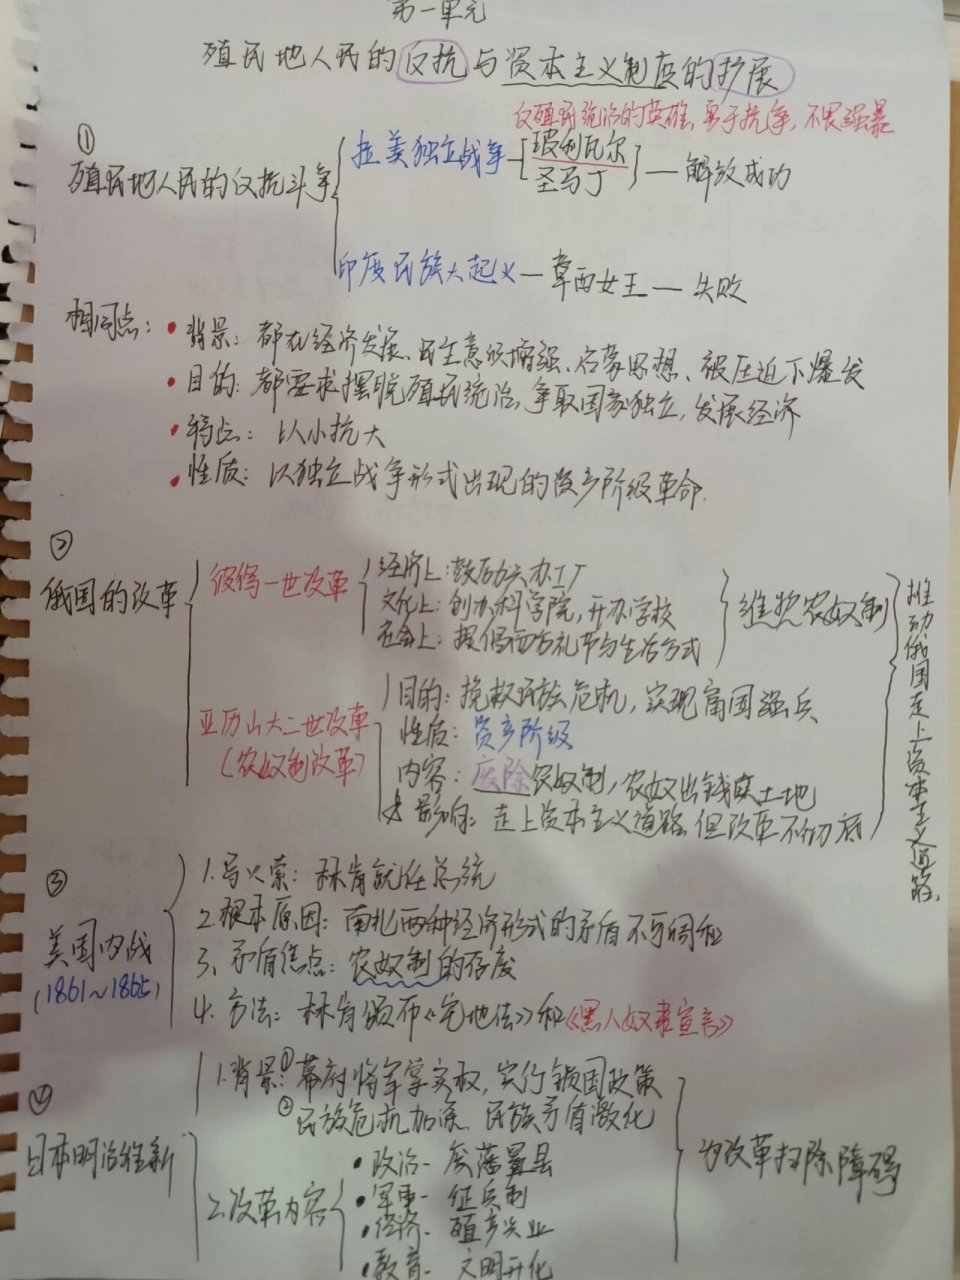 第一单元
殖民地人民的反抗与资本主义制度的扩展
反殖民统治的英雄，勇于抗争，不畏强暴
①
殖民地人民的反抗斗争
拉美独立战争—[玻利瓦尔
圣马丁]—解放成功
印度民族大起义—章西女王—失败
相同点：
·背景：都在经济发展、民主意识增强、启蒙思想、被压迫下爆发
·目的：都要求摆脱殖民统治，争取国家独立，发展经济
·特点：以小抗大
·性质：以独立战争形式出现的资产阶级革命.
②
俄国的改革
彼得一世改革
经济上：鼓励兴办工厂
文化上：创办科学院，开办学校
社会上：提倡西方礼节与生活方式
维护农奴制
亚历山大二世改革
（农奴制改革）
目的：挽救民族危机，实现富国强兵
性质：资产阶级
内容：废除农奴制，农奴出钱买土地
影响：走上资本主义道路，但改革不彻底
推动俄国走上资本主义道路.
③
美国内战
(1861~1865)
1.导火索：林肯就任总统
2.根本原因：南北两种经济形式的矛盾不可调和
3、矛盾焦点：农奴制的存废
4.方法：林肯颁布《宅地法》和《黑人奴隶宣言》
④
日本明治维新
1.背景：①幕府将军掌实权，实行锁国政策
②民族危机加深、民族矛盾激化
2.改革内容
·政治-废藩置县
·军事-征兵制
·经济-殖产兴业
·教育-文明开化
为改革扫除障碍